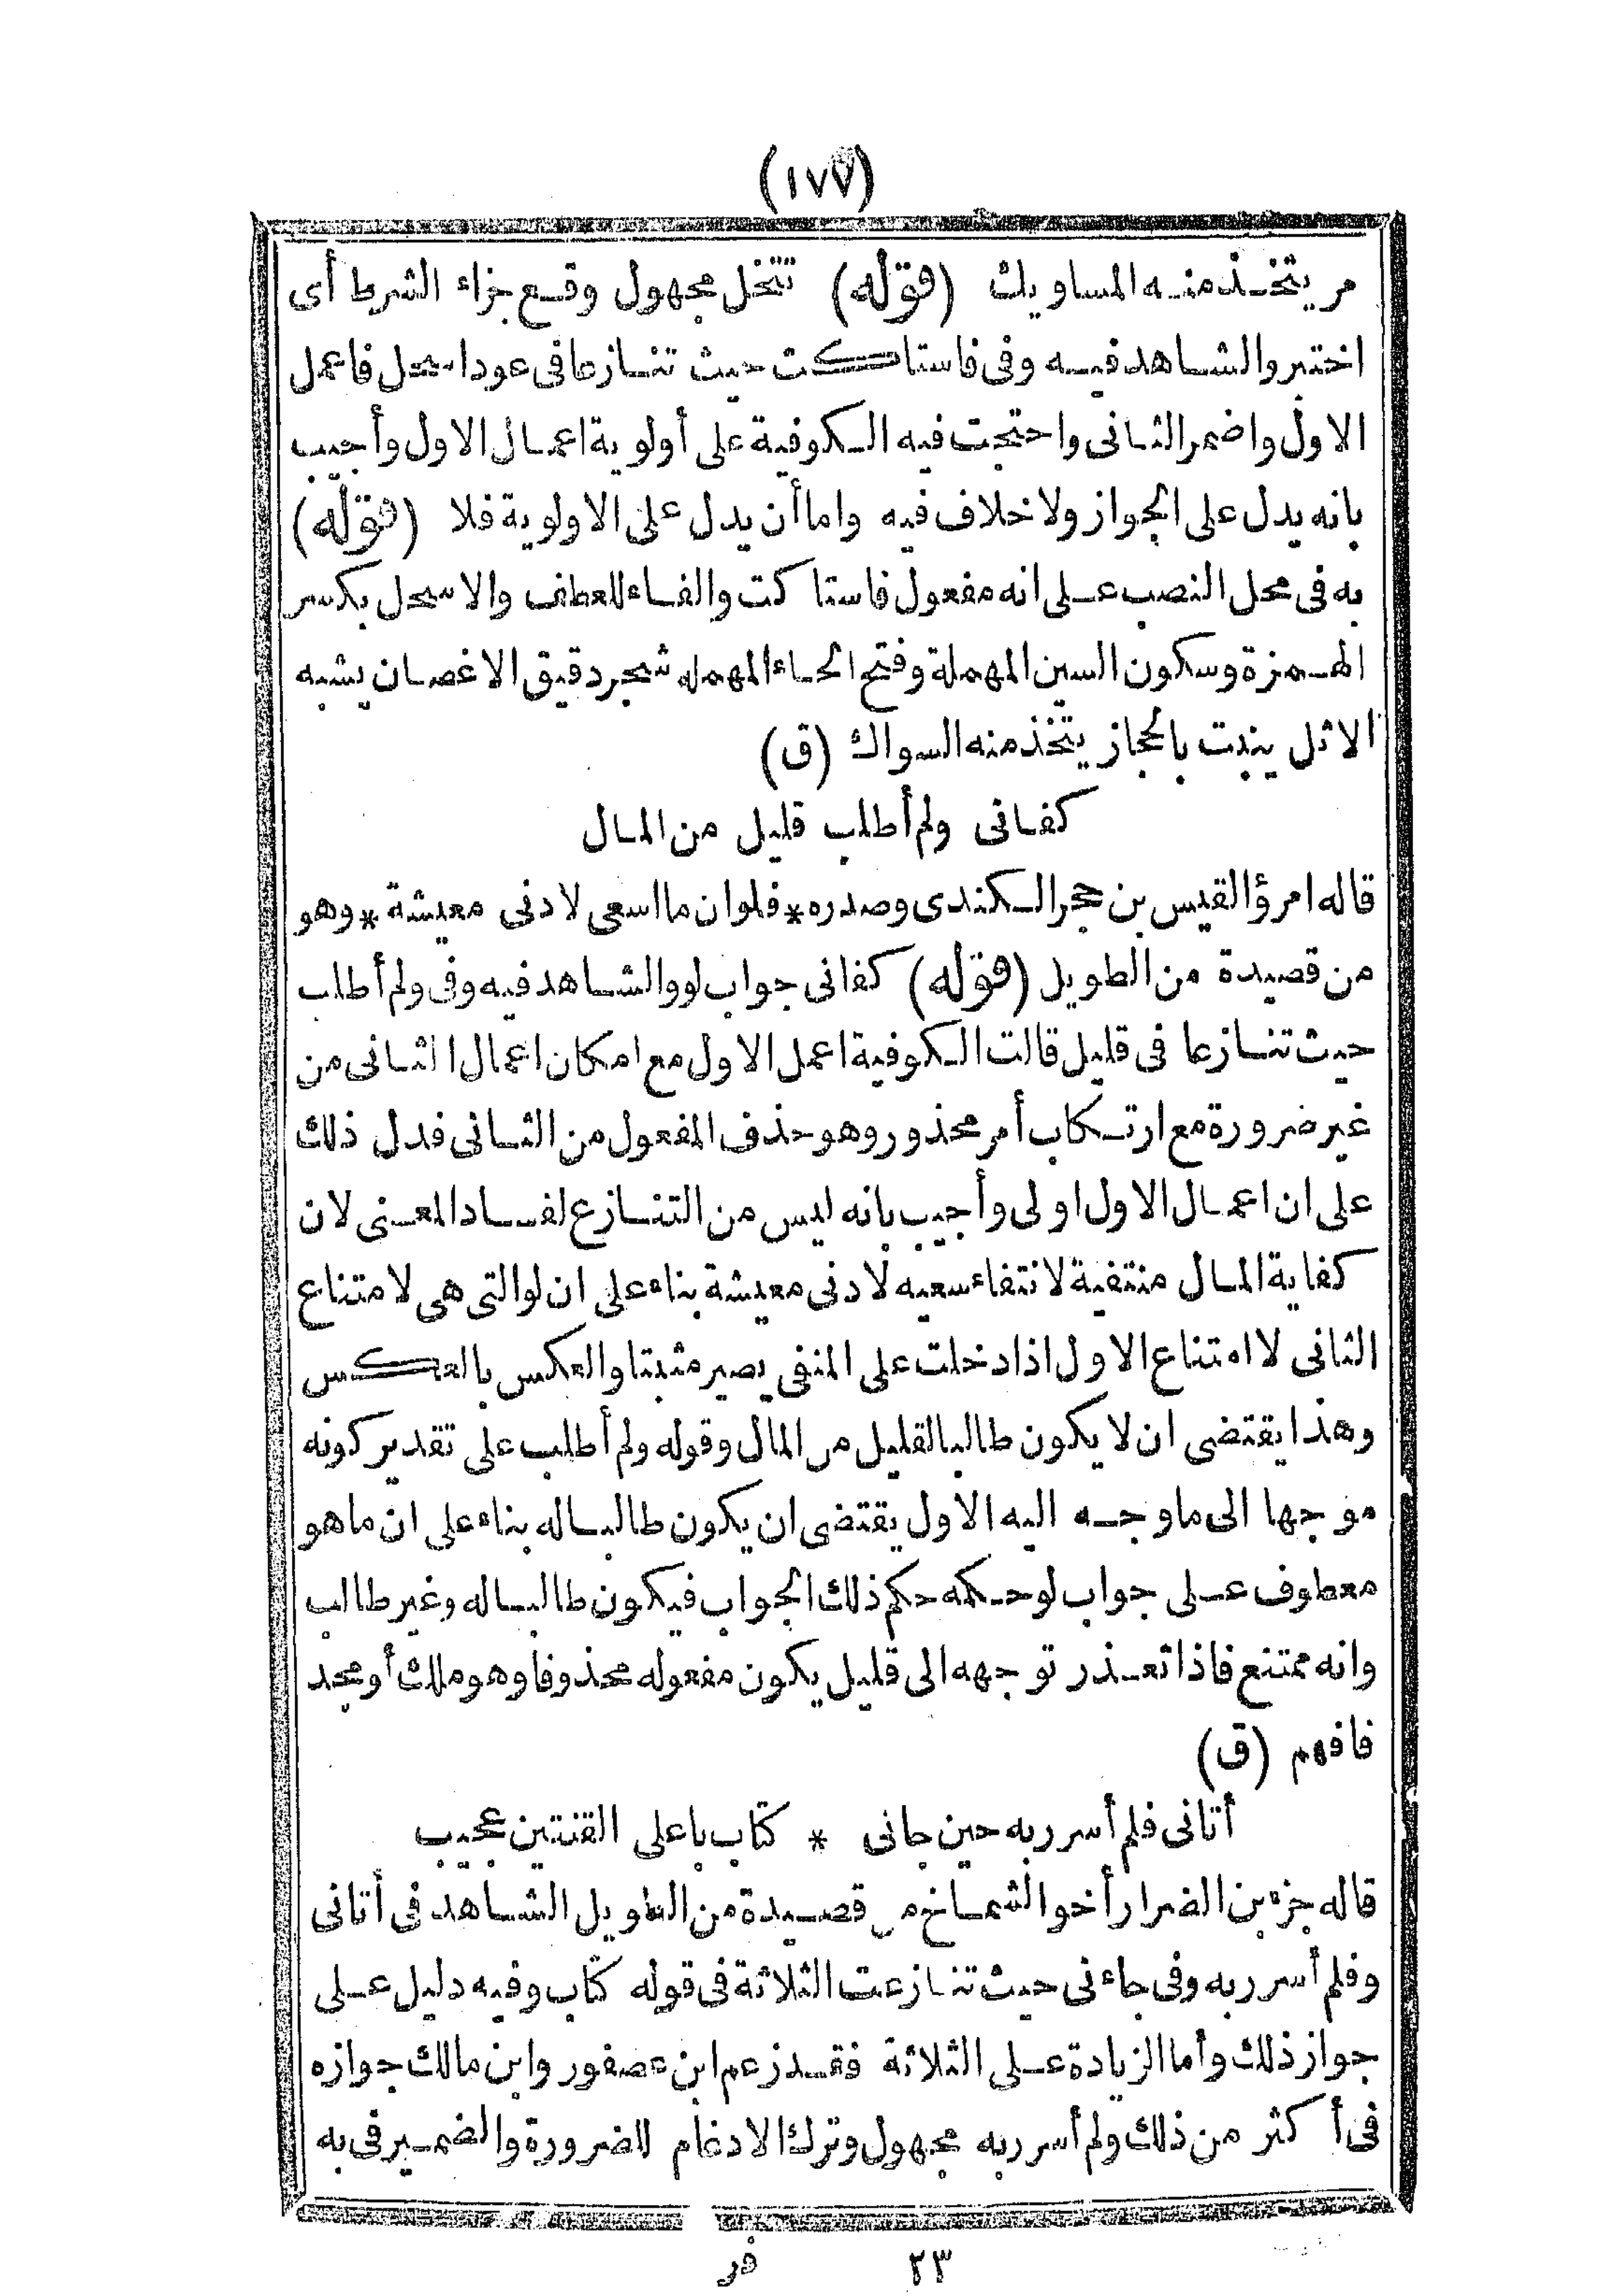 (١٧٧)
مر يتخذ منه المساويك (قوله) تنخل مجهول وقع جزاء الشرط أى
اختبر والشاهد فيه وفى فاستاكت حيث تنازعا فى عود اسحل فاعمل
الاول واضمر الثانى واحتجت فيه الكوفية على أولوية اعمال الاول وأجيب
بانه يدل على الجواز ولا خلاف فيه واما أن يدل على الاولوية فلا (قوله)
به فى محل النصب على انه مفعول فاستاكت والفاء للعطف والاسحل بكسر
الهمزة وسكون السين المهملة وفتح الحاء المهمله شجر دقيق الاغصان يشبه
الاثل ينبت بالحجاز يتخذ منه السواك (ق)
كفانى ولم أطلب قليل من المال
قاله امرؤ القيس بن حجر الكندى وصدره * فلو ان ما اسعى لادنى معيشة * وهو
من قصيدة من الطويل (قوله) كفانى جواب لو والشاهد فيه وفى ولم أطلب
حيث تنازعا فى قليل قالت الكوفية اعمل الاول مع امكان اعمال الثانى من
غير ضرورة مع ارتكاب أمر محذور وهو حذف المفعول من الثانى فدل ذلك
على ان اعمال الاول اولى وأجيب بانه ليس من التنازع لفساد المعنى لان
كفاية المال منتفية لانتفاء سعيه لادنى معيشة بناء على ان لو التى هى لامتناع
الثانى لاامتناع الاول اذا دخلت على المنفى يصير مثبتا والعكس بالعكس
وهذا يقتضى ان لا يكون طالبا لقليل من المال وقوله ولم أطلب على تقدير كونه
موجها الى ما وجه اليه الاول يقتضى ان يكون طالبا له بناء على ان ما هو
معطوف على جواب لو حكمه حكم ذلك الجواب فيكون طالبا له وغير طالب
وانه ممتنع فاذا تعذر توجهه الى قليل يكون مفعوله محذوفا وهو ملك أو مجد
فافهم (ق)
أتانى فلم أسرر به حين جانى * كتاب باعلى القنتين عجيب
قاله جزء بن الضرار أخو الشماخ من قصيدة من الطويل الشاهد فى أتانى
وفلم أسرر به وفى جاءنى حيث تنازعت الثلاثة فى قوله كتاب وفيه دليل على
جواز ذلك وأما الزيادة على الثلاثة فقد زعم ابن عصفور وابن مالك جوازه
فى أكثر من ذلك ولم أسرر به مجهول وترك الادغام للضرورة والضمير فى به
٢٣ فر